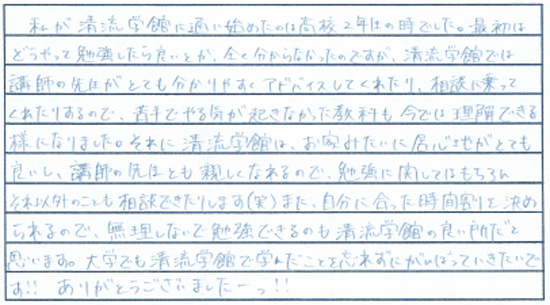 私が清流学館に通い始めたのは高校2年生の時でした。最初は
どうやって勉強したら良いとか、全く分からなかったのですが、清流学館では
講師の先生がとても分かりやすくアドバイスしてくれたり、相談に乗って
くれたりするので、苦手でやる気が起きなかった教科も今では理解できる
様になりました。それに清流学館は、お家みたいに居心地がとても
良いし、講師の先生とも親しくなれるので、勉強に関してはもちろん
それ以外のことも相談できたりします(笑)また、自分に合った時間割りを決め
られるので、無理しないで勉強できるのも清流学館の良い所だと
思います。大学でも清流学館で学んだことを忘れずにがんばっていきたいで
す!! ありがとうございましたーっ!!